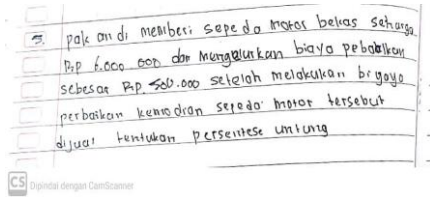 5. pak andi membeli sepeda motor bekas seharga
Rp 6.000 000 dan Mengalurkan biaya pebaikan
sebesar Rp. 500.000 setelah melakukan biyaya
perbaikan kemodian sepeda motor tersebut
dijual tentukan persentese untung
CS Dipindai dengan CamScanner